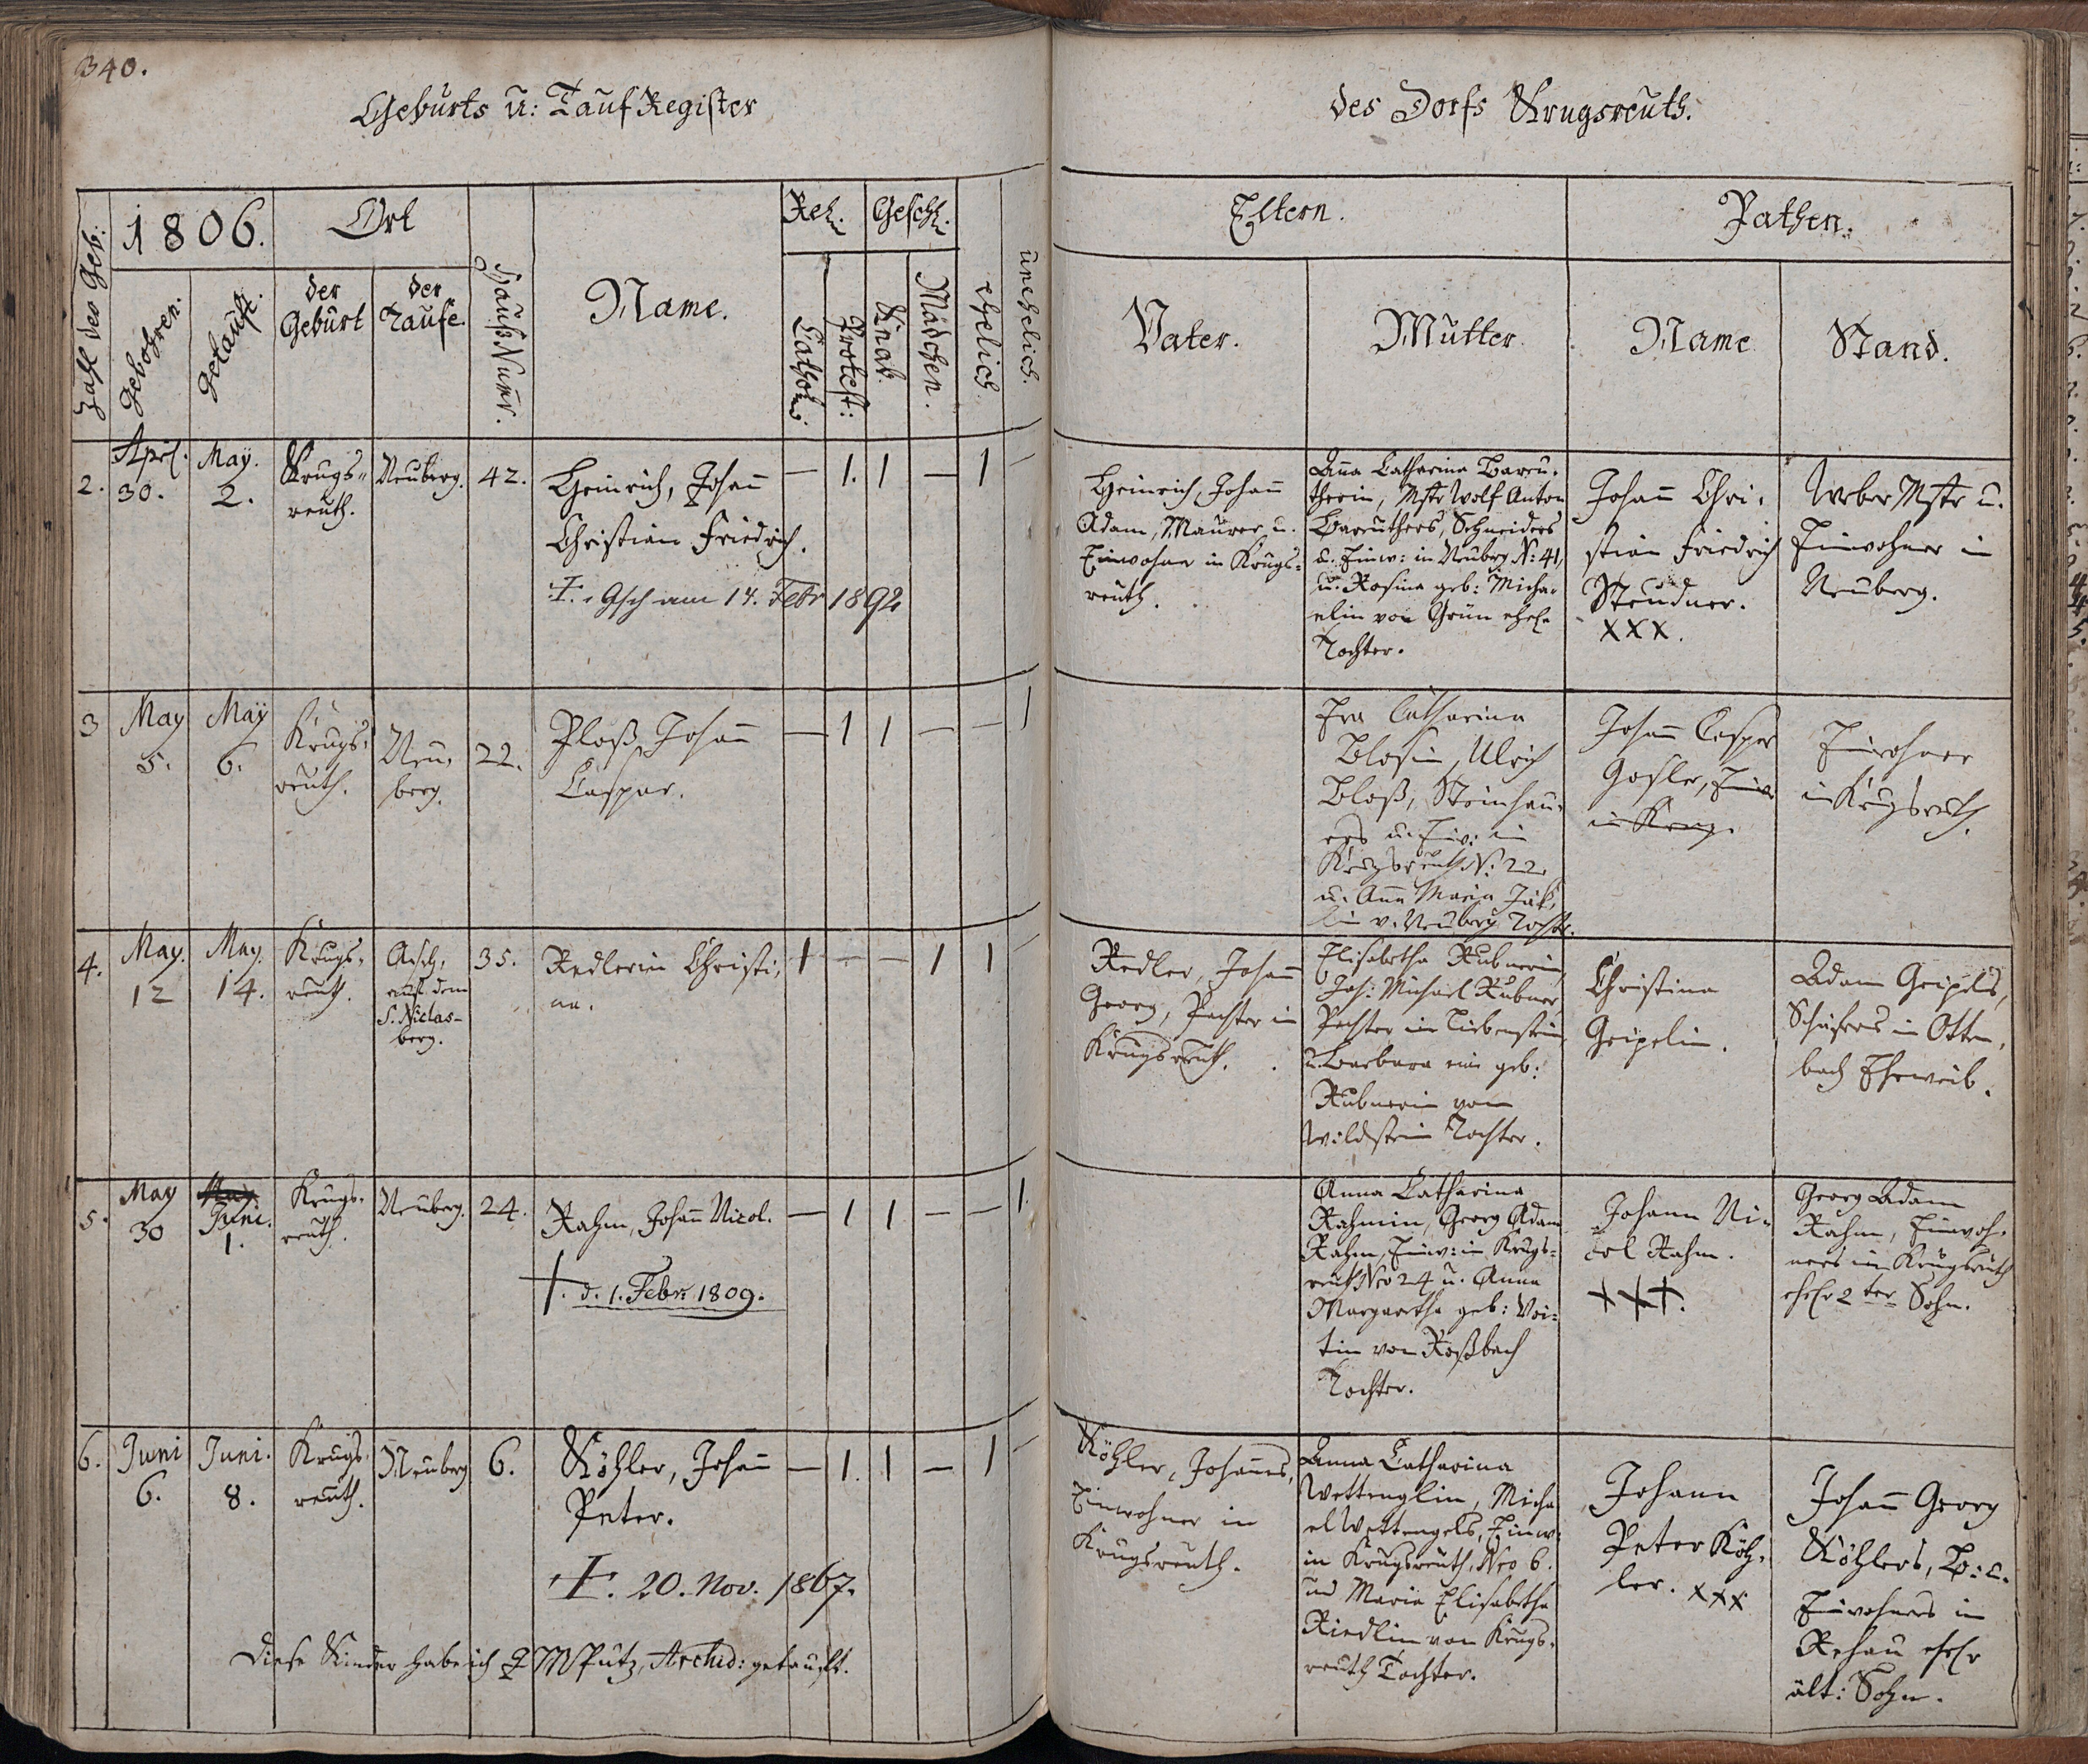 340.
Geburts u: Tauf Register
des Dorfs Krugsreuth.
Zahl der Geb:
1806.
Gebohren.
Getauft.
Ort
der
Geburt
der
Taufe.
Hauß Numr.
Name.
Rel.
Cathol.
Protest:
Geschl.
Knab.
Mädchen.
ehelich.
unehelich.
Eltern.
Vater.
Mutter.
Pathen.
Name
Stand.
2.
April.
30.
May.
2.
Krugs-
reuth.
Neuberg.
42.
Heinrich, Johann
Christian Friedrich.
†. Asch am 14. Febr 1892
— 1. 1 — 1 —
Heinrich, Johann
Adam, Maurer, u.
Einwohner in Krugs-
reuth.
Anna Catharina Bareu-
therin, Mstr Wolf Anton
Bareuthers, Schneiders
u. Einw: in Neuberg N: 41,
u. Rosina geb: Micha-
elin von Grün ehel.
Tochter.
Johann Chri-
stian Friedrich
Steudner.
XXX.
Weber Mstr u.
Einwohner in
Neuberg.
3
May
5.
May
6.
Krugs-
reuth.
Neu-
berg.
22.
Ploß, Johann
Caspar.
— 1 1 — — 1
Eva Catharina
Bloßin, Ulrich
Bloß, Steinhau-
ers u. Einw: in
Krugsreuth N: 22
u. Anna Maria
v. Neuberg Tochter.
Johann Caspar
Goßler, Einw
in Krug.
Einwohner
in Krugsreuth.
4.
May.
12
May.
14.
Krugs-
reuth.
Asch,
auf dem
S. Niclas-
berg.
35.
Redlerin Christi-
na.
1 — — 1 1 —
Redler, Johann
Georg, Pachter in
Krugsreuth.
Elisabetha Rubnerin,
Joh: Michael Rubner,
Pachter in Liebenstein
u. Barbara eine geb:
Rubnerin vom
Wildstein Tochter.
Christina
Geipelin.
Adam Geipels,
Schäfers in Otten-
bach Eheweib.
5.
May
30
May
Juni.
1.
Krugs-
reuth.
Neuberg.
24.
Rahm, Johann Nicol.
†. d. 1. Febr: 1809.
— 1 1 — — 1.
Anna Catharina
Rahmin, Georg Adam
Rahm, Einw: in Krugs-
reuth Nro 24 u. Anna
Margaretha geb: Voi-
tin von Roßbach
Tochter.
Johann Ni-
col Rahm.
XXX.
Georg Adam
Rahm, Einwoh-
ners in Krugsreuth
ehel. 2ter Sohn.
6.
Juni
6.
Juni.
8.
Krugs-
reuth.
Neuberg
6.
Köhler, Johann
Peter.
†. 20. Nov. 1867.
— 1. 1 — 1 —
Köhler, Johannes,
Einwohner in
Krugsreuth.
Anna Catharina
Wettenglin, Micha
el Wettengels, Einw:
in Krugsreuth, Nro 6.
und Maria Elisabetha
Riedlin von Krugs-
reuth Tochter.
Johann
Peter Köh-
ler. XXX
Johann Georg
Köhlers, B. u.
Einwohners in
Rehau ehel.
ält: Sohn.
Diese Kinder habe ich Pütz, Archid: getauft.